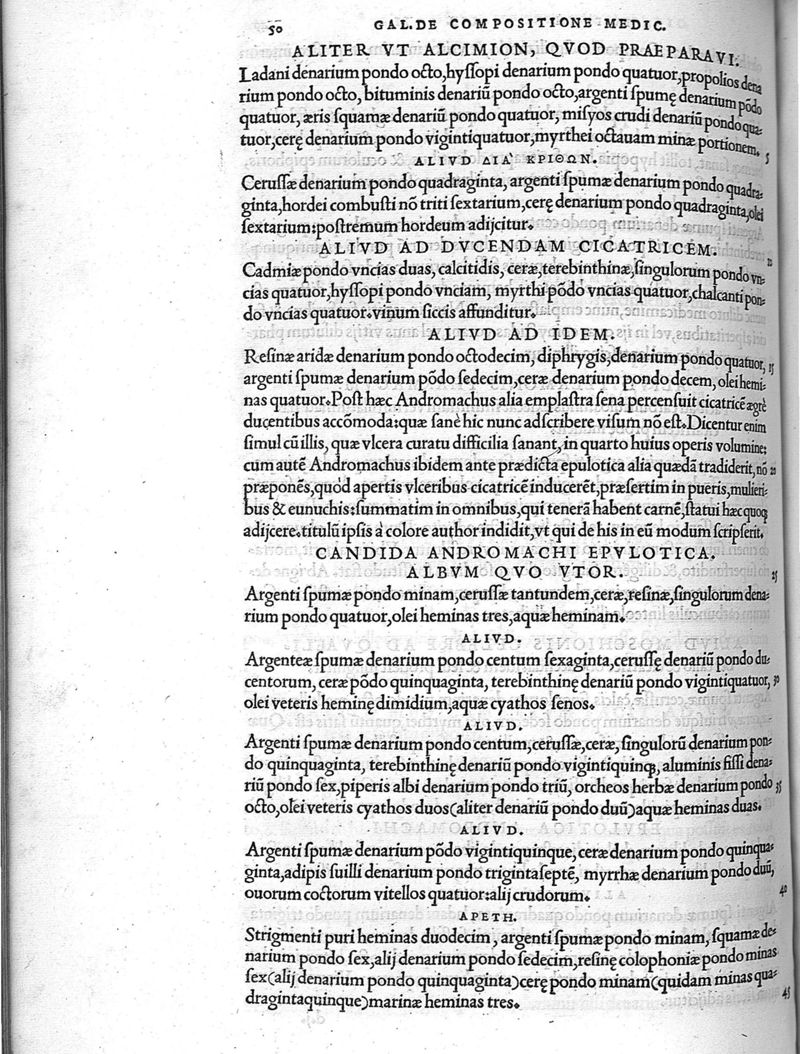 50 GAL. DE COMPOSITIONE MEDIC.
ALITER VT ALCIMION, QVOD PRAEPARAVI.
Ladani denarium pondo octo, hyſſopi denarium pondo quatuor, propolios dena
rium pondo octo, bituminis denariũ pondo octo, argenti ſpumę denarium põdo
quatuor, æris ſquamæ denariũ pondo quatuor, miſyos crudi denariũ pondo qua-
tuor, cerę denarium pondo vigintiquatuor, myrthei octauam minæ portionem. 5
ALIVD ΔΙΑ` ΚΡΙΘΩΝ.
Ceruſſæ denarium pondo quadraginta, argenti ſpumæ denarium pondo quadra-
ginta, hordei combuſti nõ triti ſextarium, cerę denarium pondo quadraginta, olei
ſextarium: poſtremum hordeum adijcitur.
ALIVD AD DVCENDAM CICATRICEM.
Cadmiæ pondo vncias duas, calcitidis, ceræ, terebinthinæ, ſingulorum pondo vn-
cias quatuor, hyſſopi pondo vnciam, myrthi põdo vncias quatuor, chalcanti pon-
do vncias quatuor. vinum ſiccis affunditur.
ALIVD AD IDEM.
Reſinæ aridæ denarium pondo octodecim, diphrygis, denarium pondo quatuor, 15
argenti ſpumæ denarium põdo ſedecim, ceræ denarium pondo decem, olei hemi-
nas quatuor. Poſt hæc Andromachus alia emplaſtra ſena percenſuit cicatricẽ ægrè
ducentibus accõmoda: quæ ſanè hic nunc adſcribere viſum nõ eſt. Dicentur enim
ſimul cũ illis, quæ vlcera curatu difficilia ſanant, in quarto huius operis volumine:
cum autẽ Andromachus ibidem ante prædicta epulotica alia quædã tradiderit, nõ 20
præponẽs, quòd apertis vlceribus cicatricẽ inducerẽt, præſertim in pueris, mulieri-
bus & eunuchis: ſummatim in omnibus, qui tenerã habent carnẽ, ſtatui hæc quoq;
adijcere. titulũ ipſis à colore author indidit, vt qui de his in eũ modum ſcripſerit.
CANDIDA ANDROMACHI EPVLOTICA.
ALBVM QVO VTOR. 25
Argenti ſpumæ pondo minam, ceruſſæ tantundem, ceræ, reſinæ, ſingulorum dena-
rium pondo quatuor, olei heminas tres, aquæ heminam.
ALIVD.
Argenteæ ſpumæ denarium pondo centum ſexaginta, ceruſſę denariũ pondo du-
centorum, ceræ põdo quinquaginta, terebinthinę denariũ pondo vigintiquatuor, 30
olei veteris heminę dimidium, aquæ cyathos ſenos.
ALIVD.
Argenti ſpumæ denarium pondo centum, ceruſſæ, ceræ, ſingulorũ denarium pon-
do quinquaginta, terebinthinę denariũ pondo vigintiquinq;, aluminis fiſſi dena-
riũ pondo ſex, piperis albi denarium pondo triũ, orcheos herbæ denarium pondo 35
octo, olei veteris cyathos duos (aliter denariũ pondo duũ) aquæ heminas duas.
ALIVD.
Argenti ſpumæ denarium põdo vigintiquinque, ceræ denarium pondo quinqua-
ginta, adipis ſuilli denarium pondo trigintaſeptẽ, myrrhæ denarium pondo duũ,
ouorum coctorum vitellos quatuor: alij crudorum. 40
APETH.
Strigmenti puri heminas duodecim, argenti ſpumæ pondo minam, ſquamæ de-
narium pondo ſex, alij denarium pondo ſedecim, reſinę colophoniæ pondo minas
ſex (alij denarium pondo quinquaginta) cerę pondo minam (quidam minas qua-
dragintaquinque) marinæ heminas tres. 45